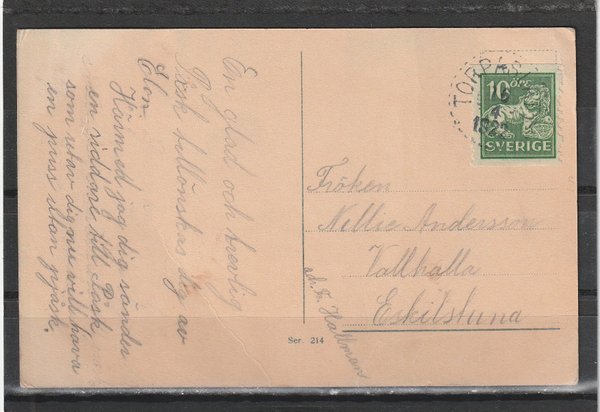 En glad och trevlig
Påsk tillönskas dig av
Elon
Härmed jag dig sänder
en riddare till Påsk
som utav dig nu vill hava
en puss utan pjåsk.
TORPÅS
10 ÖRE
SVERIGE
Fröken
Nillie Andersson
Vallhalla
Eskilstuna
Ser. 214